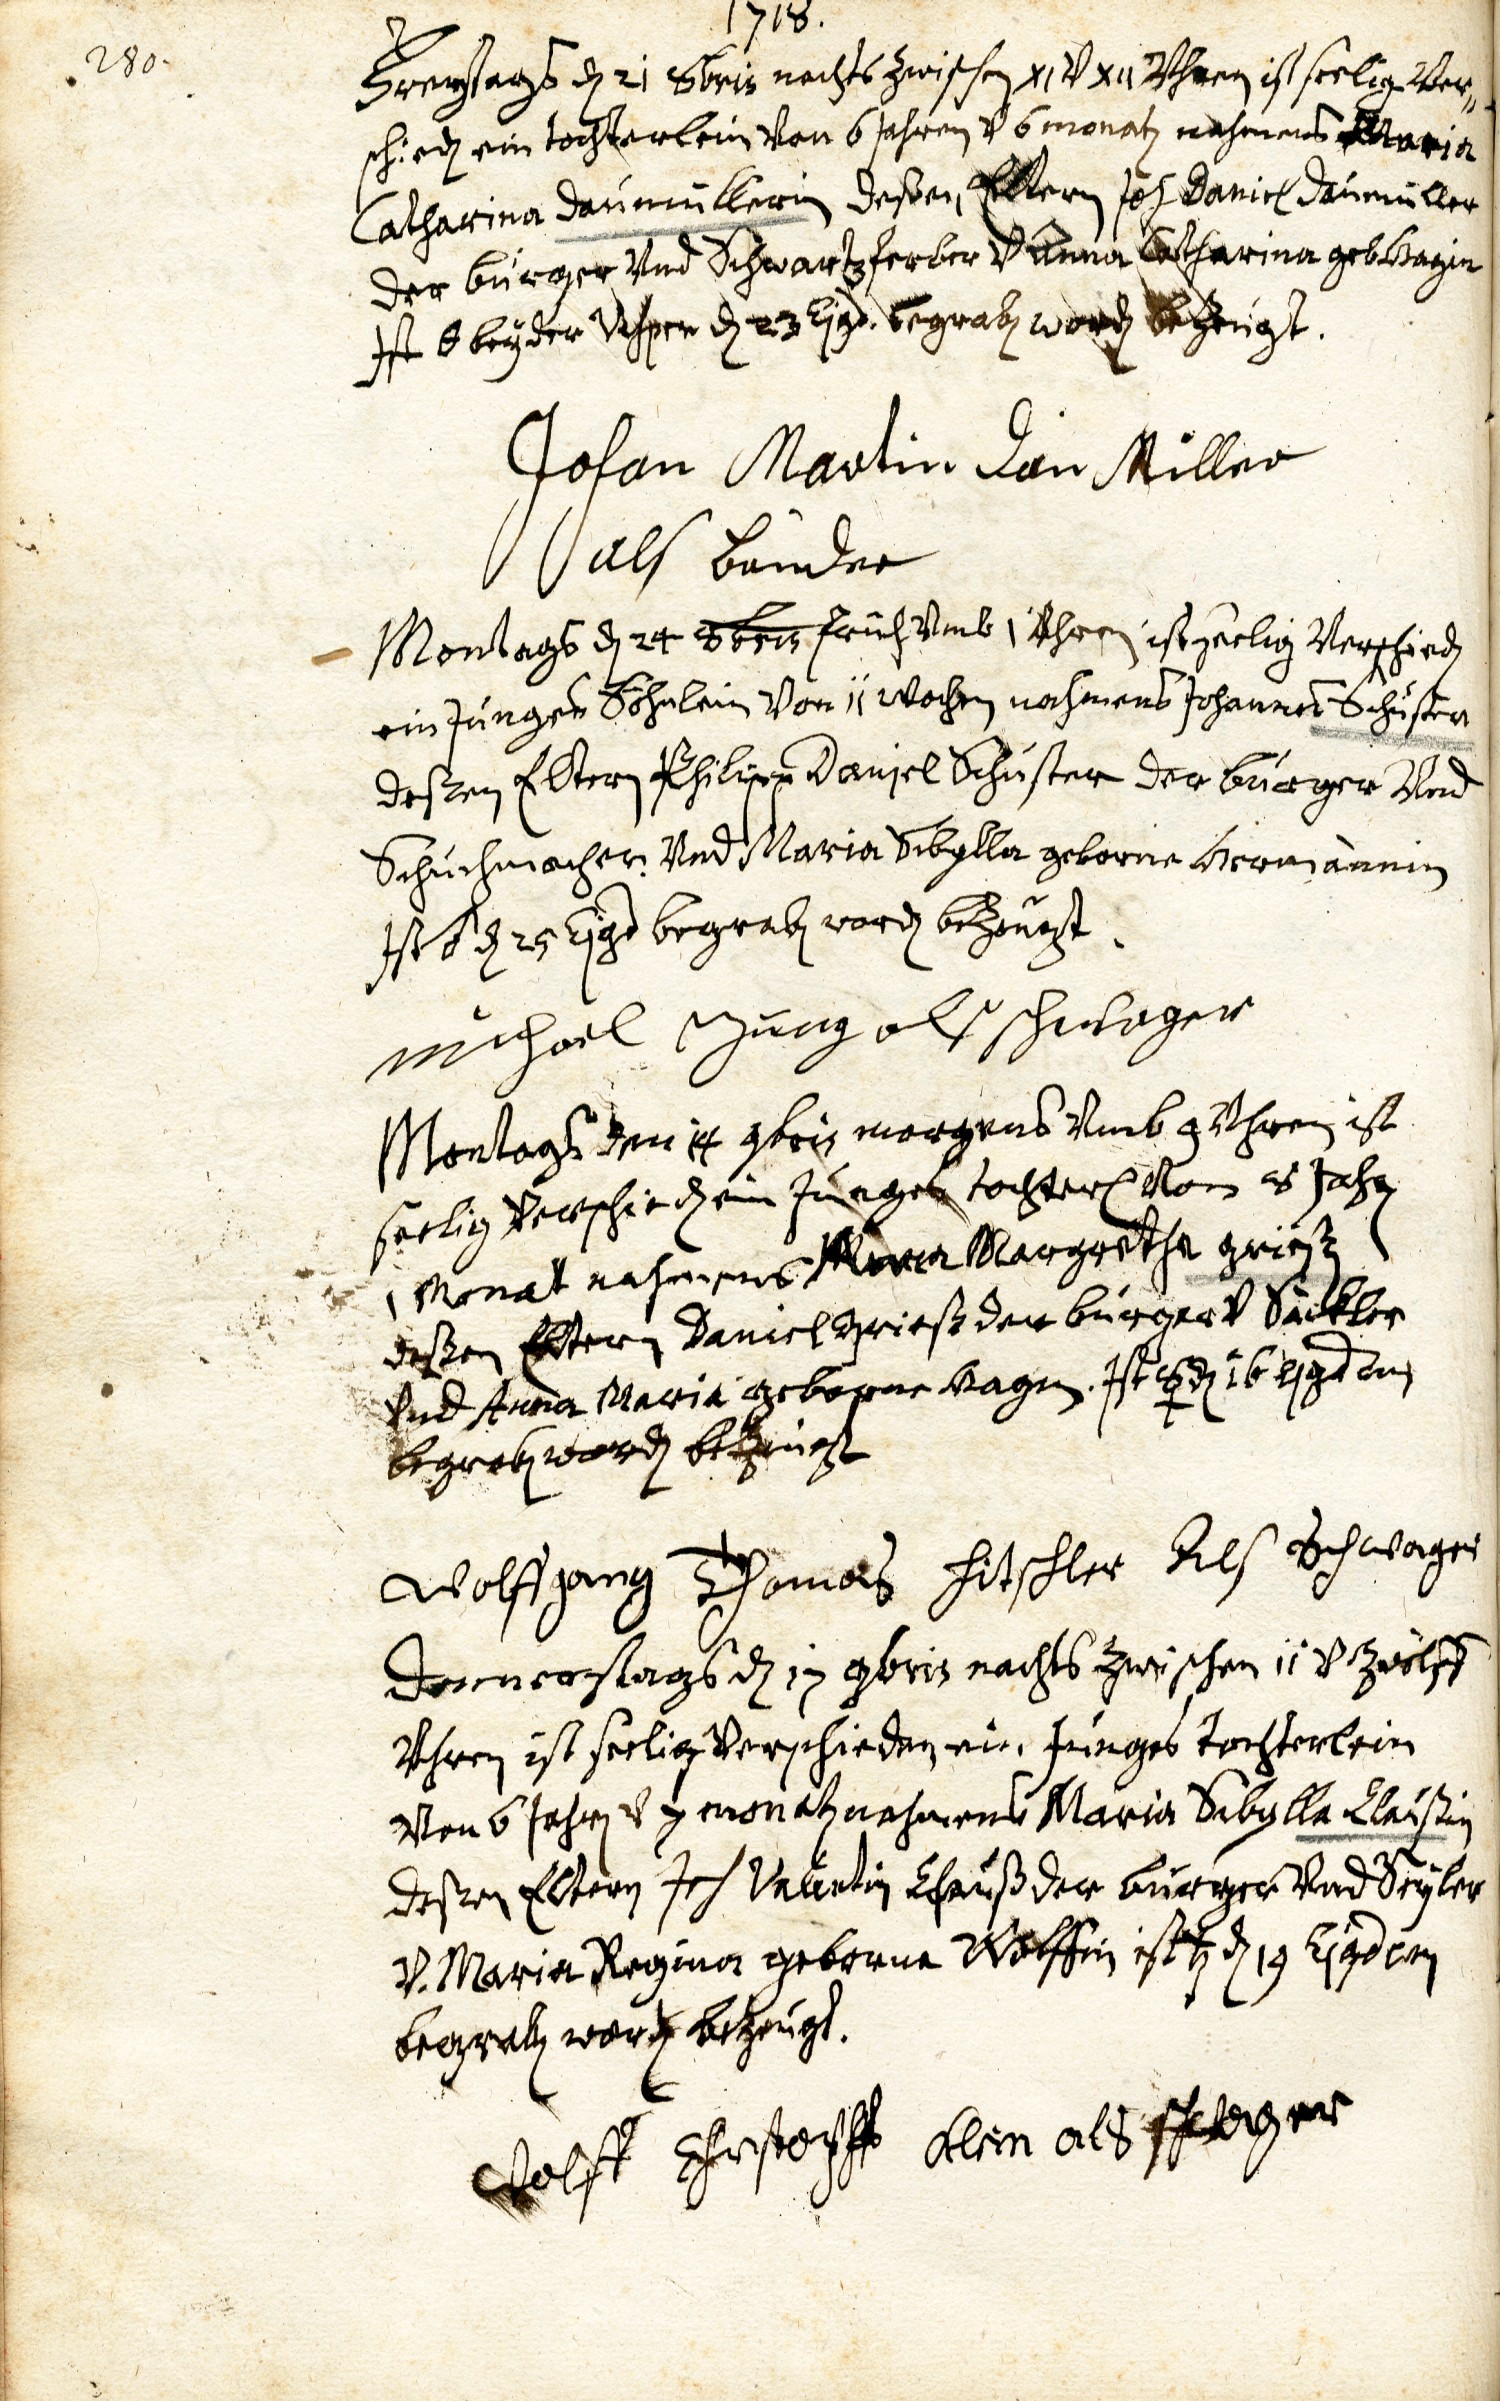 1718.
280.
Freytags dn 21 8bris nachts zwischen XI v XII Uhren ist seelig Ver„
schiedn ein tochterlein Von 6 Jahren v 6 monatn nahmens Maria
Catharina Daumüllerin deßen Eltern Joh Daniel Daumüller
der burger Vnd Schwartzferber v Anna Catharina geb. Hagin
Ist bey der Vesper dn 23 Ejgd. begrabn wordn bezeugt.
Johan Martin Dau Miller
als bruder
Montags dn 24 8bris früh Vmb 1 Uhren ist seelig Verschiedn
ein Junges Söhnlein Von 11 Wochen nahmens Johannes Schuster
deßen Eltern Philipp Daniel Schuster der burger Vnd
Schuhmacher Vnd Maria Sibylla geborne Hermännin
Ist dn 25 Ejgd begrabn wordn bezeugt.
Michael Jung als schwager
Montags den 14 9bris morgens Vmb 9 Uhren ist
seelig Verschiedn ein Junges tochterl Von 8 Jahn
1 Monat nahmens Maria Margretha Grießn
deßen Eltern Daniel Grieß der burger v Säckler
Vnd Anna Maria geborne Hagin. Ist ☿ dn 16 ejgdem
begrabn wordn bezeugt
Wolffgang Thomas Hitschler Als Schwager
Donnerstags dn 17 9bris nachts zwischen 11 v zwölff
Uhren ist seelig Verschieden ein Junges tochterlein
Von 6 Jahrn v 7 monatn nahmens Maria Sibylla Claußin
deßen Eltern Joh Valentin Clauß der burger Vnd Seyler
v. Maria Regina geborne Wolffin ist ♄ dn 19 Ejgdem
begrabn wordn bezeugt.
Wolff Christoph Klein als